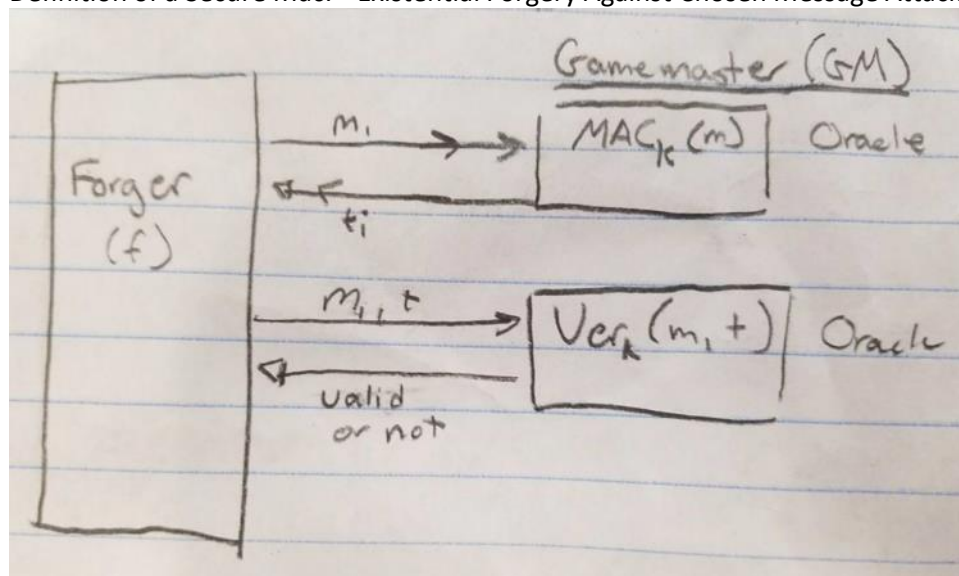 Definition of a Secure MAC - Existential Forgery Against Chosen Message Attack
Gamemaster (GM)
m₁
MACₖ(m)
Oracle
Forger
(f)
tᵢ
m₁, t
Verₖ(m, t)
Oracle
valid
or not